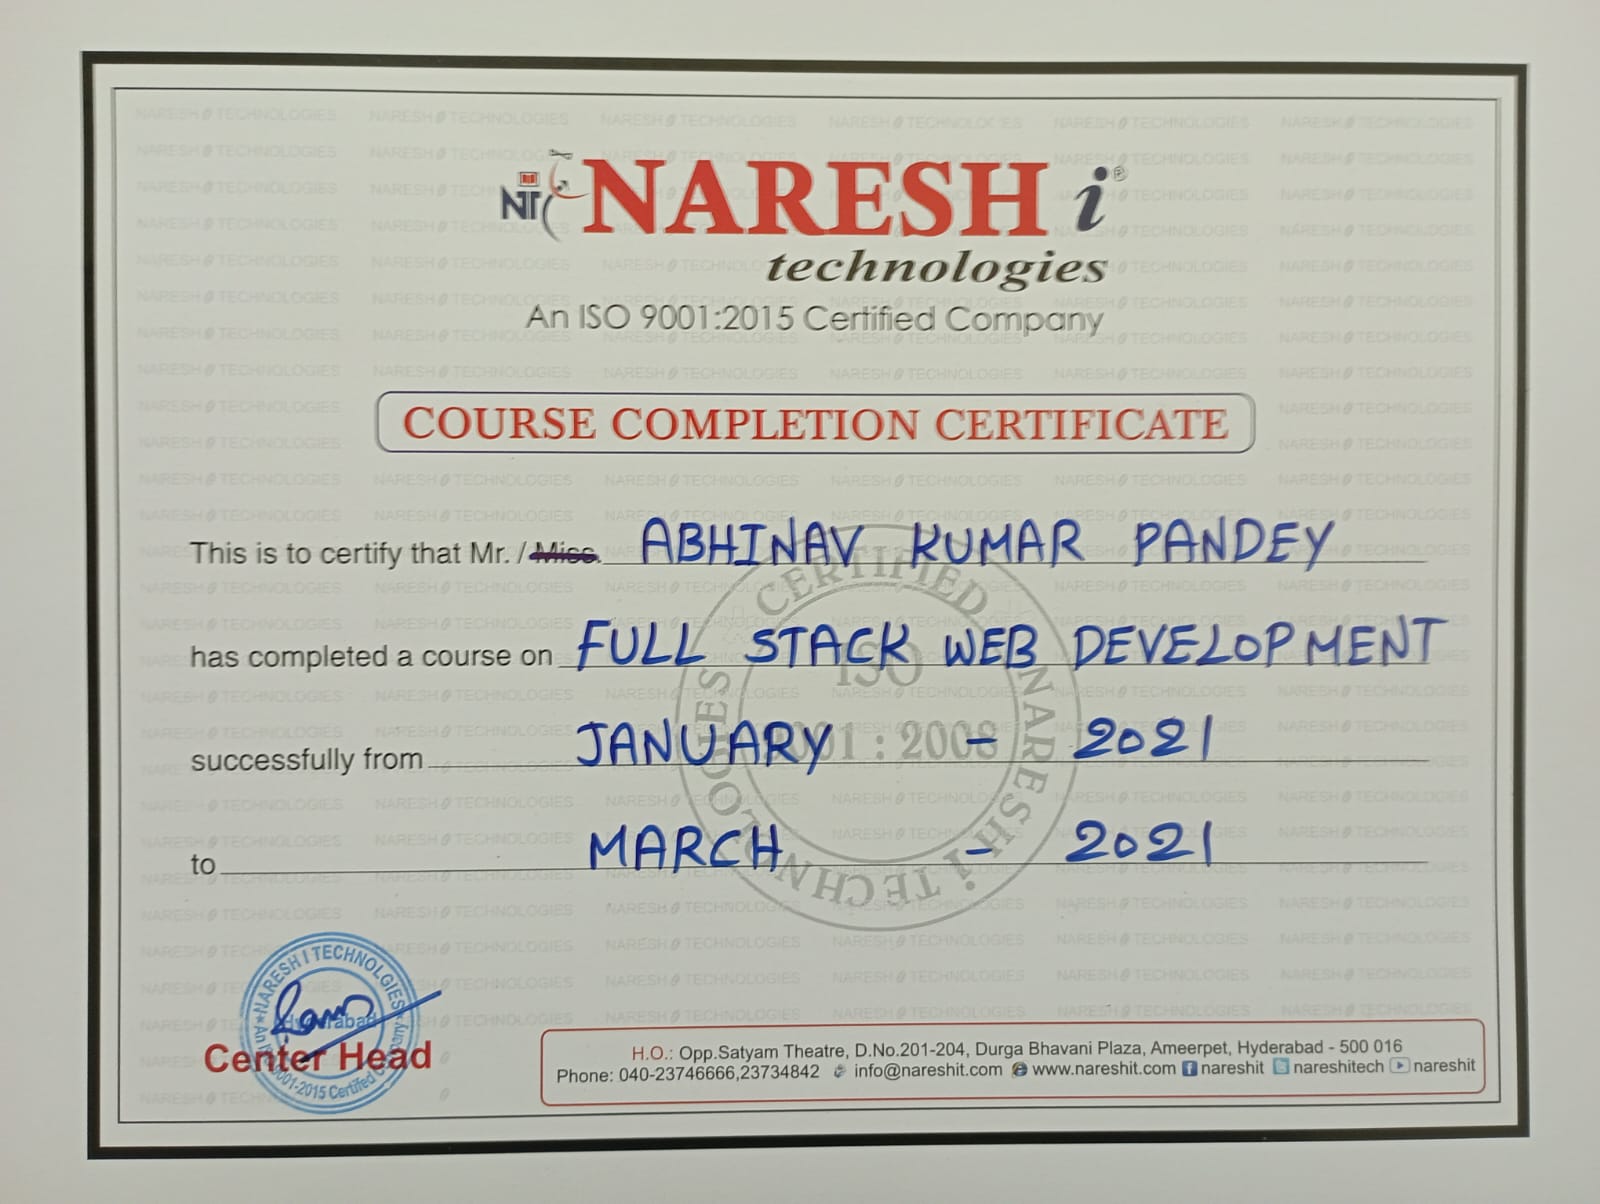 NT
NARESH i®
technologies
An ISO 9001:2015 Certified Company
COURSE COMPLETION CERTIFICATE
This is to certify that Mr. / Miss. ABHINAV KUMAR PANDEY
has completed a course on FULL STACK WEB DEVELOPMENT
successfully from JANUARY - 2021
to MARCH - 2021
CERTIFIED
ISO
9001 : 2008
NARESH i TECHNOLOGIES
NARESH I TECHNOLGIES
An ISO 9001-2015 Certified Company
Hyderabad
Center Head
H.O.: Opp.Satyam Theatre, D.No.201-204, Durga Bhavani Plaza, Ameerpet, Hyderabad - 500 016
Phone: 040-23746666,23734842 info@nareshit.com www.nareshit.com nareshit nareshitech nareshit